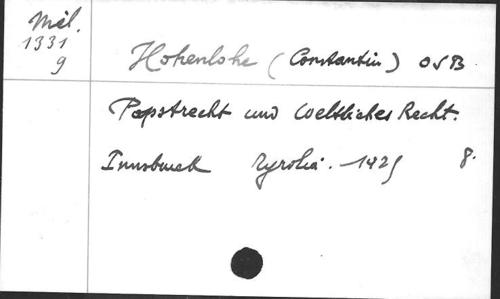 Mél.
1331
9
Hohenlohe (Constantin) OSB
Papstrecht und Weltliches Recht.
Innsbruck Tyrolia. 1925 8.